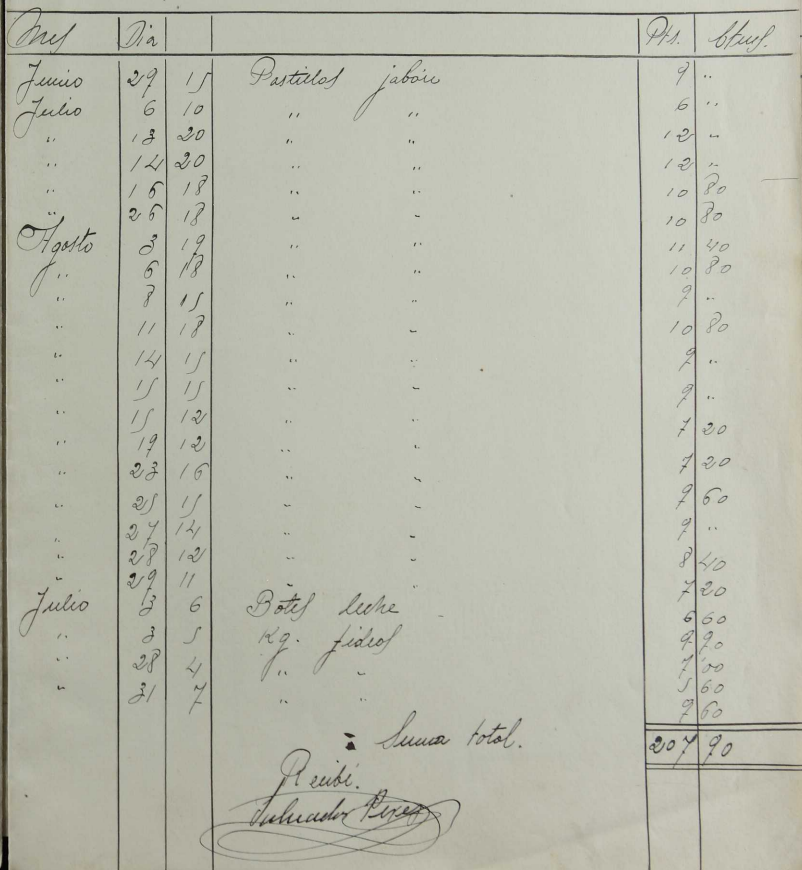 Mes Dia Pts. Ctms.
Junio 29 15 Pastillas jabón 9 "
Julio 6 10 " " 6 "
" 13 20 " " 12 "
" 14 20 " " 12 "
" 16 18 " " 10 80
" 26 18 " " 10 80
Agosto 3 19 " " 11 40
" 6 18 " " 10 80
" 8 15 " " 9 "
" 11 18 " " 10 80
" 14 15 " " 9 "
" 15 15 " " 9 "
" 15 12 " " 7 20
" 19 12 " " 7 20
" 23 16 " " 9 60
" 25 15 " " 9 "
" 27 14 " " 8 40
" 28 12 " " 7 20
" 29 11 " " 6 60
Julio 3 6 Botes leche 9 90
" 3 5 Kg. fideos 7 00
" 28 4 " " 5 60
" 31 7 " " 9 60
Suma total. 207 90
Recibí.
Salvador Perez